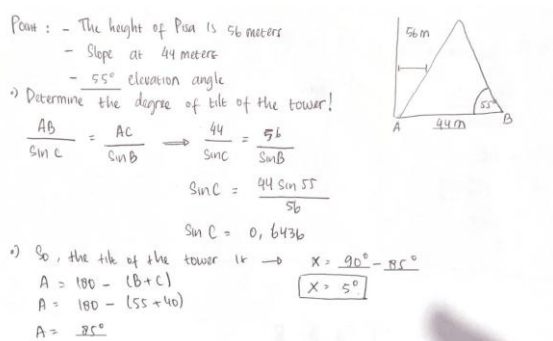 Point : - The height of Pisa is 56 meters
- Slope at 44 meters
- 55° elevation angle
•) Determine the degree of tilt of the tower!
AB / Sin C = AC / Sin B → 44 / Sin C = 56 / Sin B
Sin C = 44 Sin 55 / 56
Sin C = 0,6436
•) So, the tilt of the tower is → X = 90° - 85°
A = 180 - (B+C)
X = 5°
A = 180 - (55 + 40)
A = 85°
56 m
55°
A
44 m
B